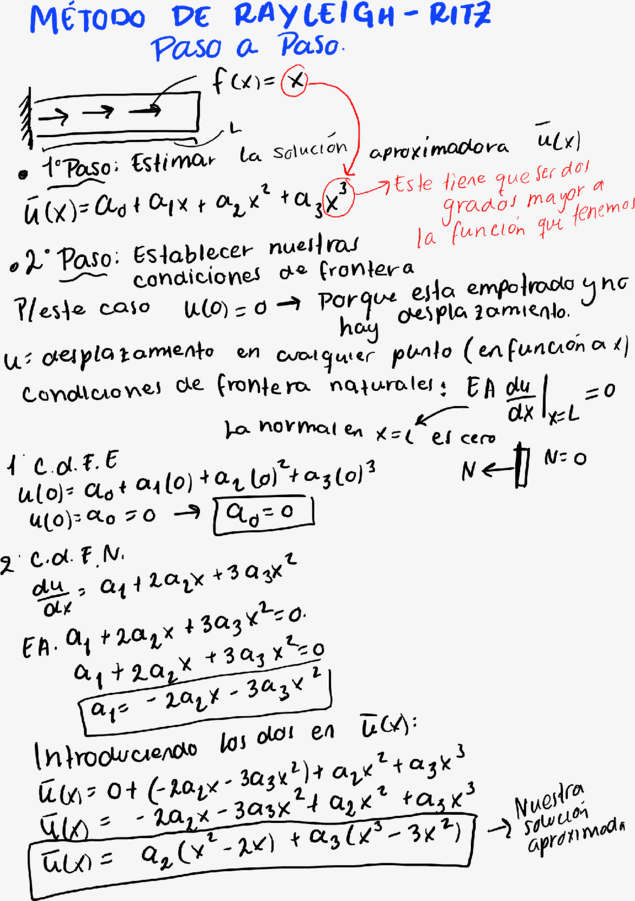 MÉTODO DE RAYLEIGH-RITZ
Paso a Paso.
f(x)= x
L
• 1° Paso: Estimar la solución aproximadora ū(x)
ū(x)= a₀ + a₁x + a₂x² + a₃x³
Este tiene que ser dos
grados mayor a
la función que tenemos
• 2° Paso: Establecer nuestras
condiciones de frontera
P/este caso u(0)=0 → Porque esta empotrado y no
hay desplazamiento.
u= desplazamiento en cualquier punto (en función a x)
condiciones de frontera naturales: EA du/dx |x=L =0
La normal en x=L es cero
N ← N=0
1° C.d.F.E
u(0)= a₀ + a₁(0) + a₂(0)² + a₃(0)³
u(0)=a₀ =0 → a₀=0
2° C.d.F.N.
du/dx = a₁+2a₂x+3a₃x²
EA. a₁+2a₂x+3a₃x²=0.
a₁+2a₂x +3a₃x²=0
a₁= -2a₂x-3a₃x²
Introduciendo los dos en ū(x):
ū(x)= 0+(-2a₂x-3a₃x²)+a₂x²+a₃x³
ū(x)= -2a₂x-3a₃x²+a₂x²+a₃x³
ū(x)= a₂(x²-2x) + a₃(x³-3x²)
→ Nuestra
solución
aproximada